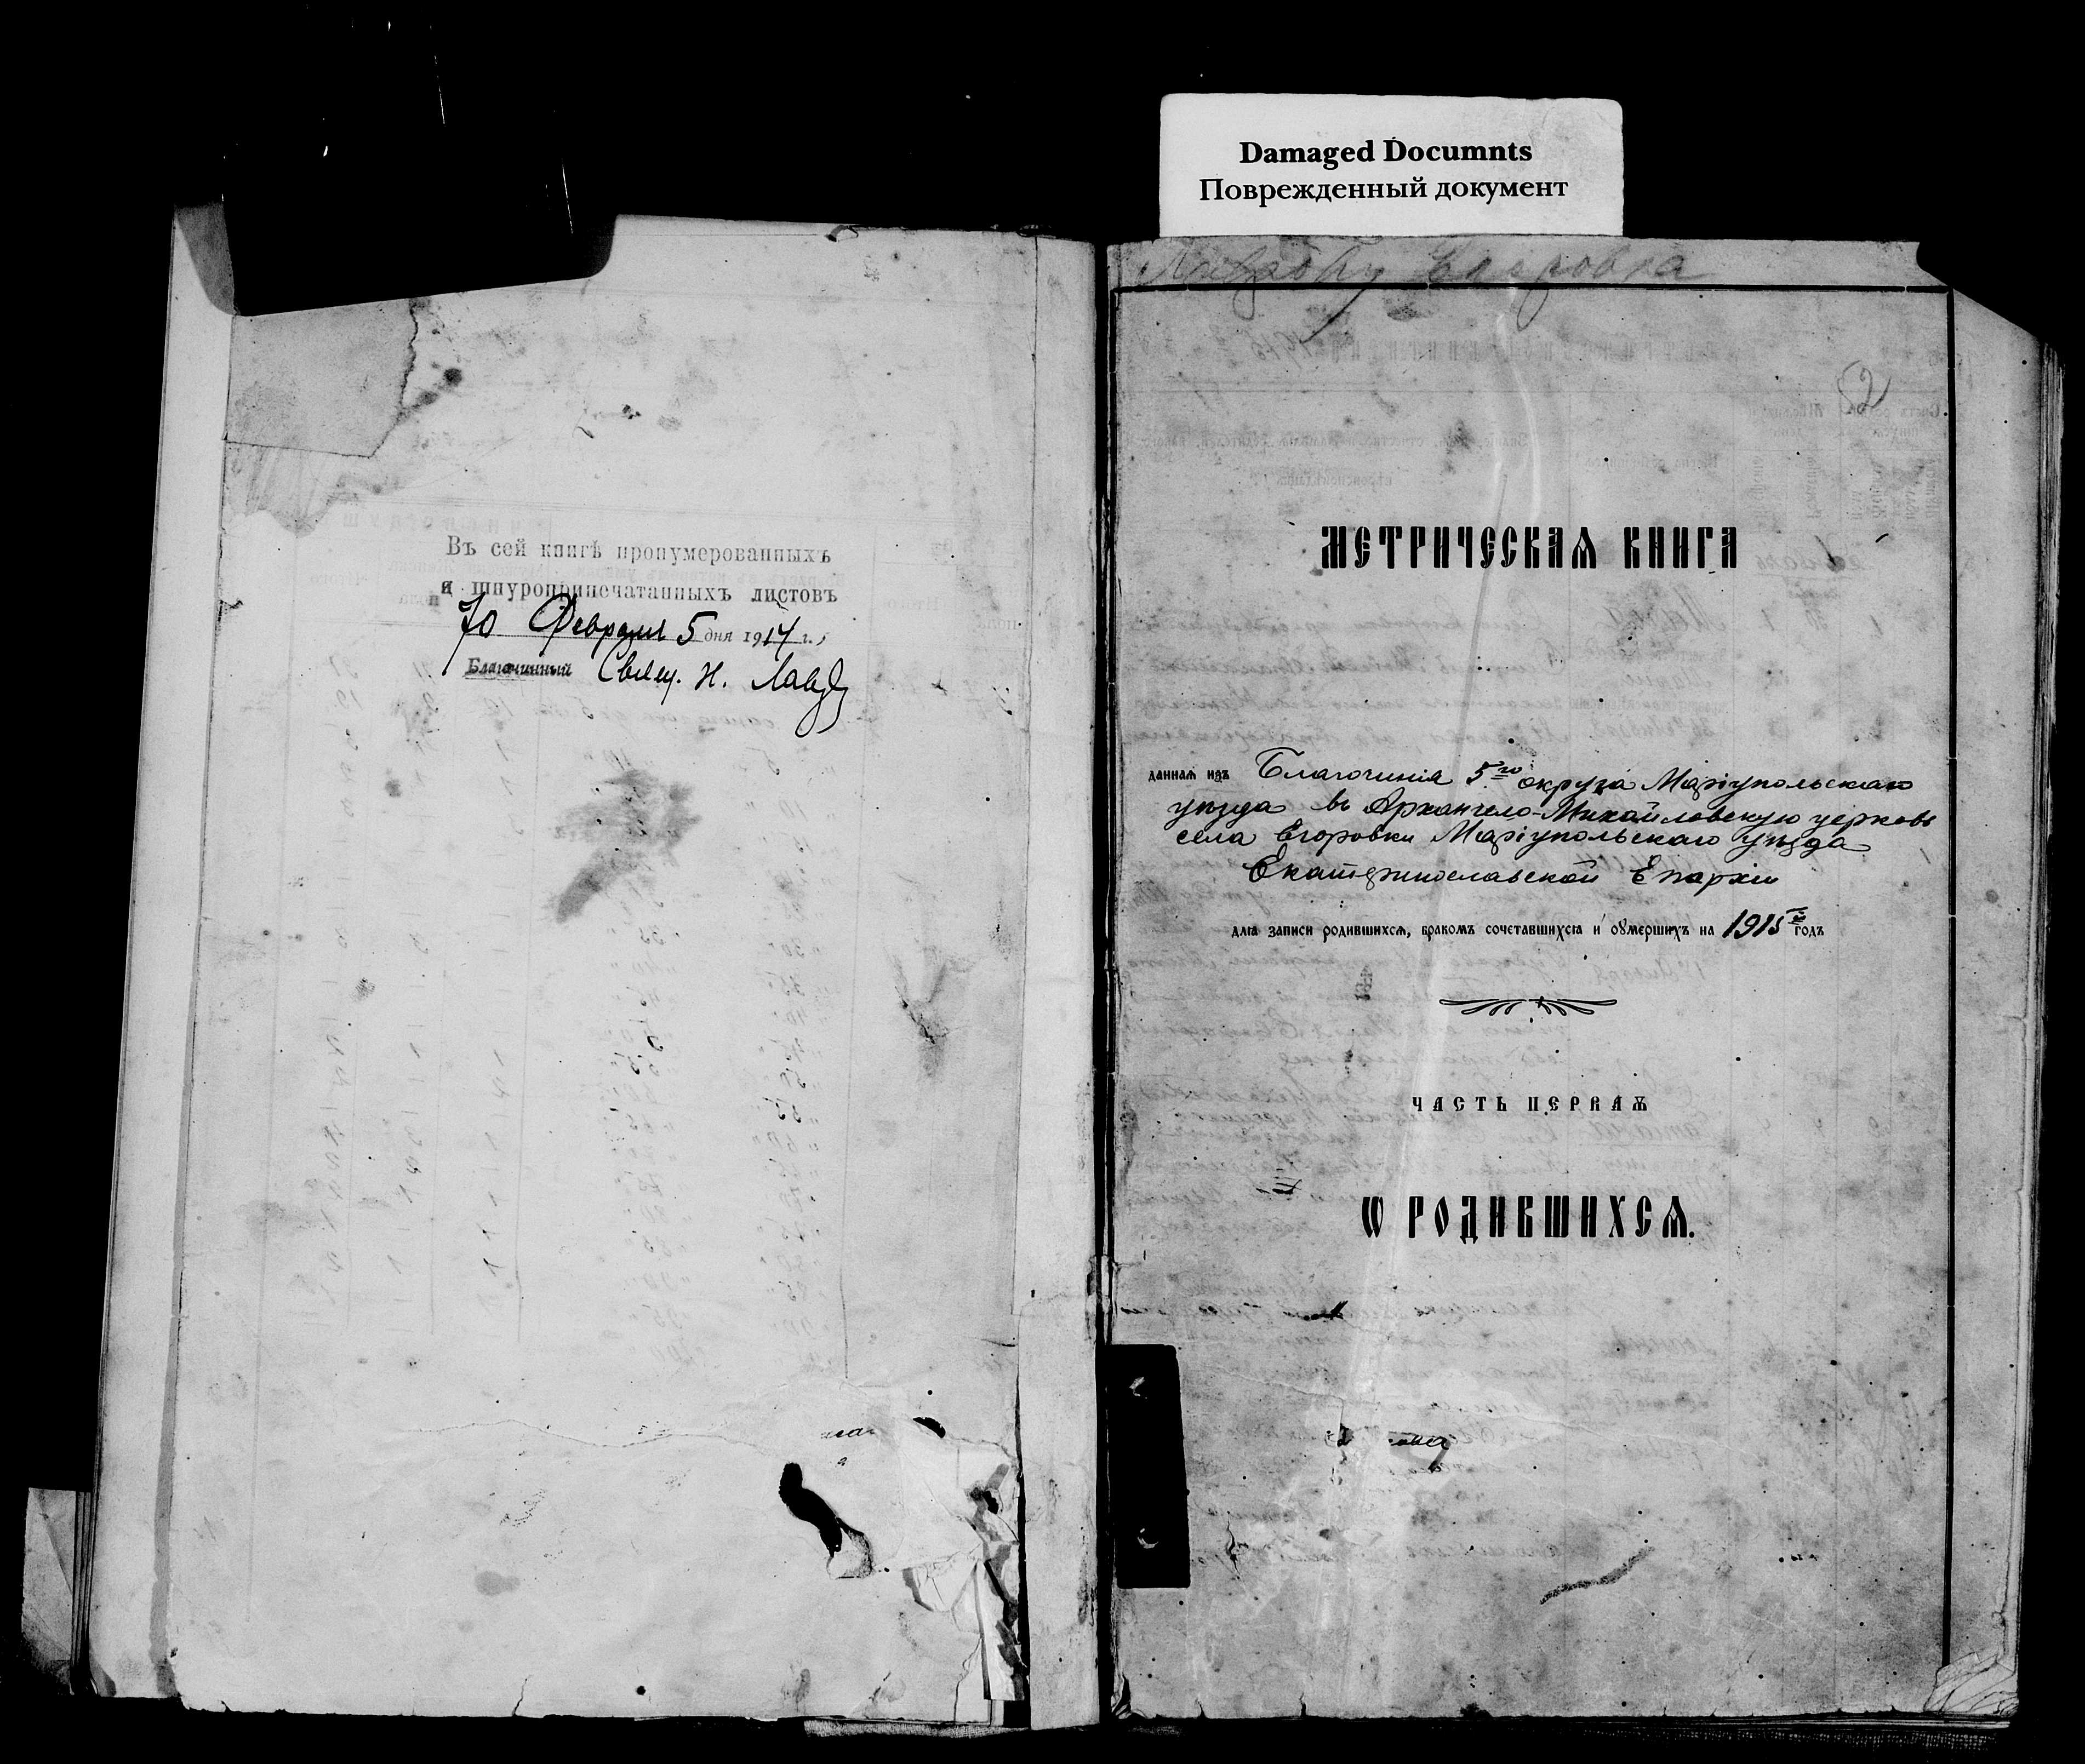 Damaged Documnts
Поврежденный документ
Егоровка
2
Въ сей книгѣ пронумерованныхъ
и шнуроприпечатанныхъ листовъ
70 Февраля 5 дня 1914 г.,
Благочинный Свящ. Н.
МЕТРИЧЕСКАѦ КНИГА
даннаѧ изъ Благочинія 5го округа Маріупольскаго
уѣзда въ Архангело-Михайловскую церковь
села Егоровки Маріупольскаго уѣзда
Екатеринославской Епархіи
длѧ записи родившихсѧ, бракомъ сочетавшихсѧ и оумершихъ на 1915й годъ
ЧАСТЬ ПЕРВАѦ
Ѡ РОДИВШИХСѦ.